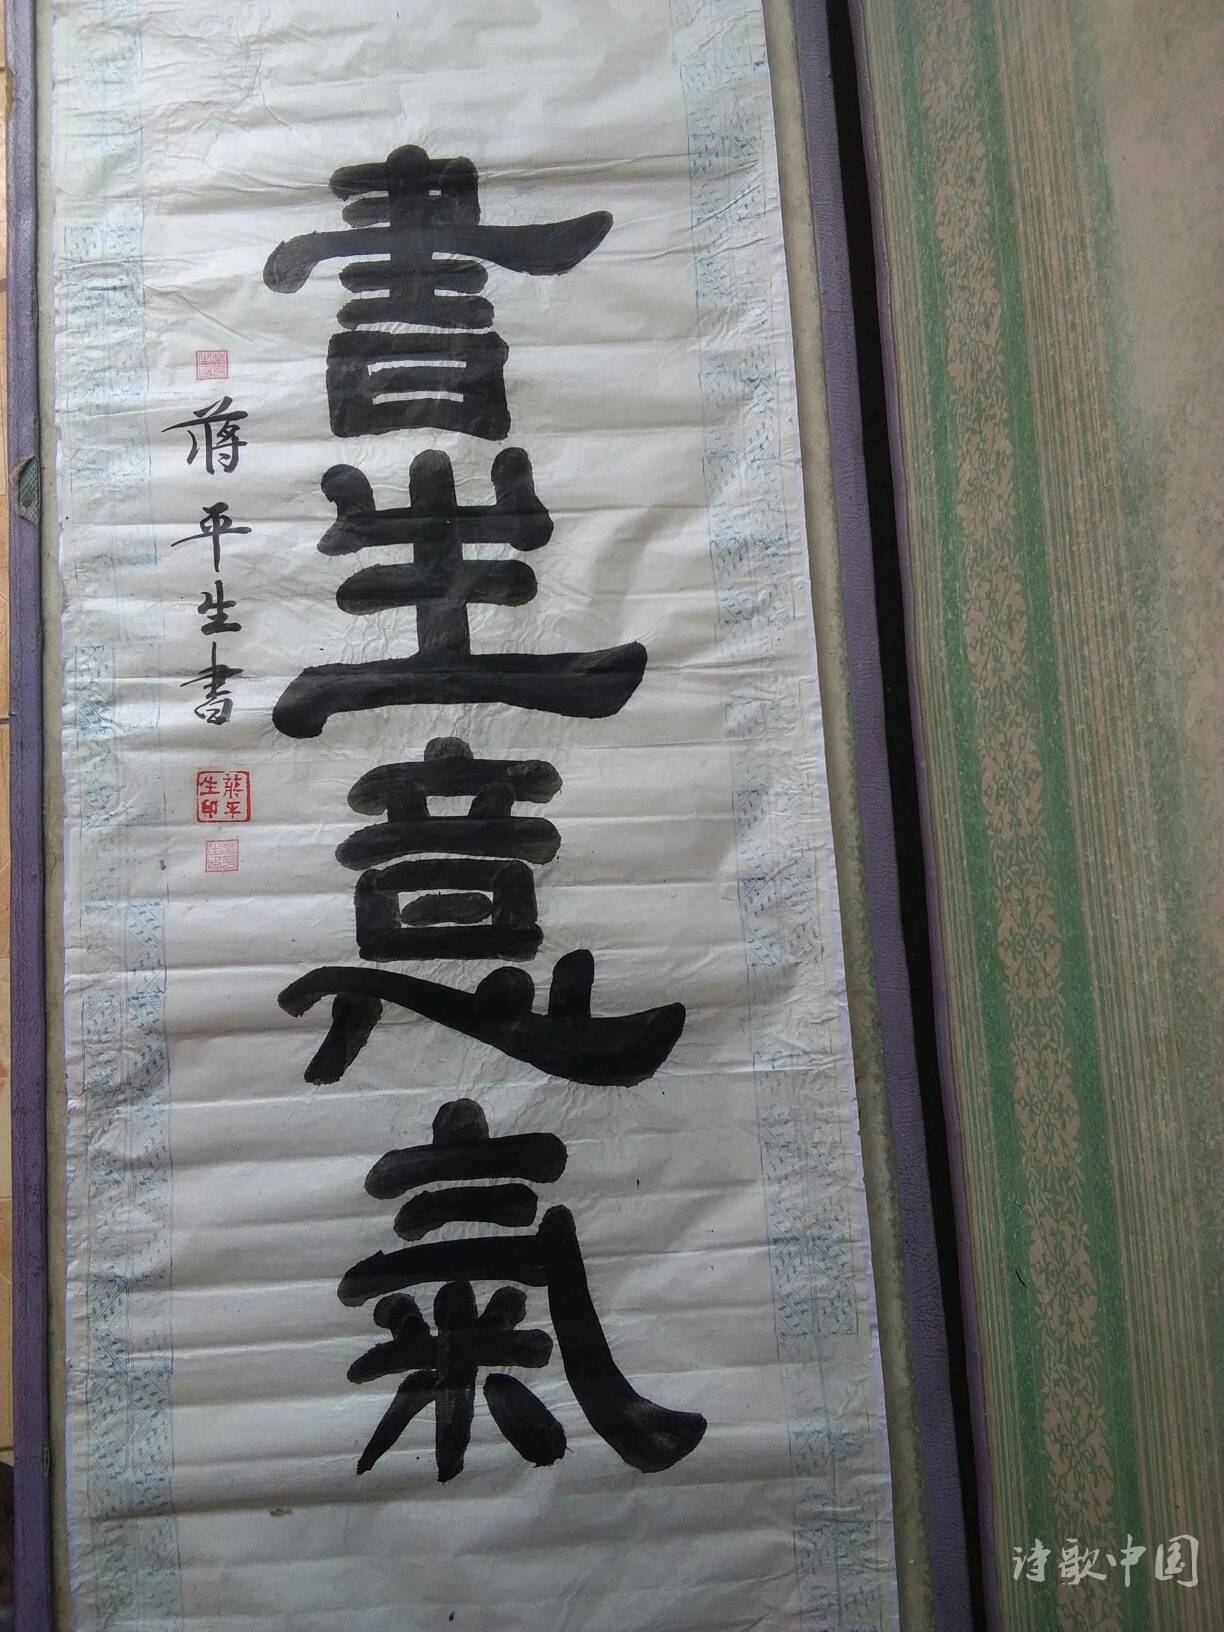 書生意氣
蔣平生書
蔣平生印
诗歌中国